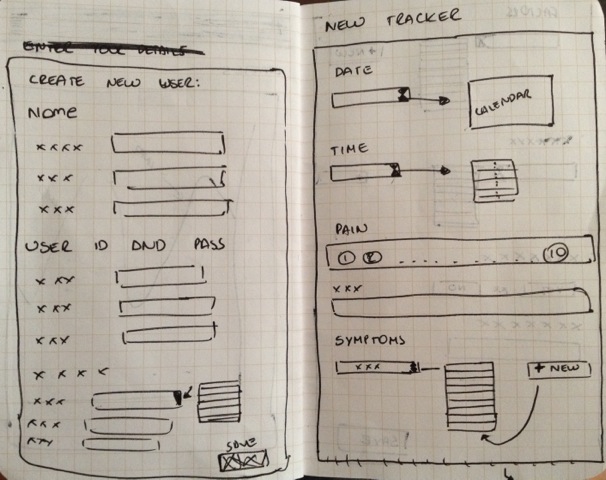 ENTER YOUR DETAILS
CREATE NEW USER:
NAME
xxxx
xxx
xxx
USER ID AND PASS
x xx
xxx
xxx
x x x x
xxx
xxx
xxx
SAVE
NEW TRACKER
DATE
CALENDAR
TIME
PAIN
1 2 . . . . . . . . 10
xxx
SYMPTOMS
xxx
+ NEW